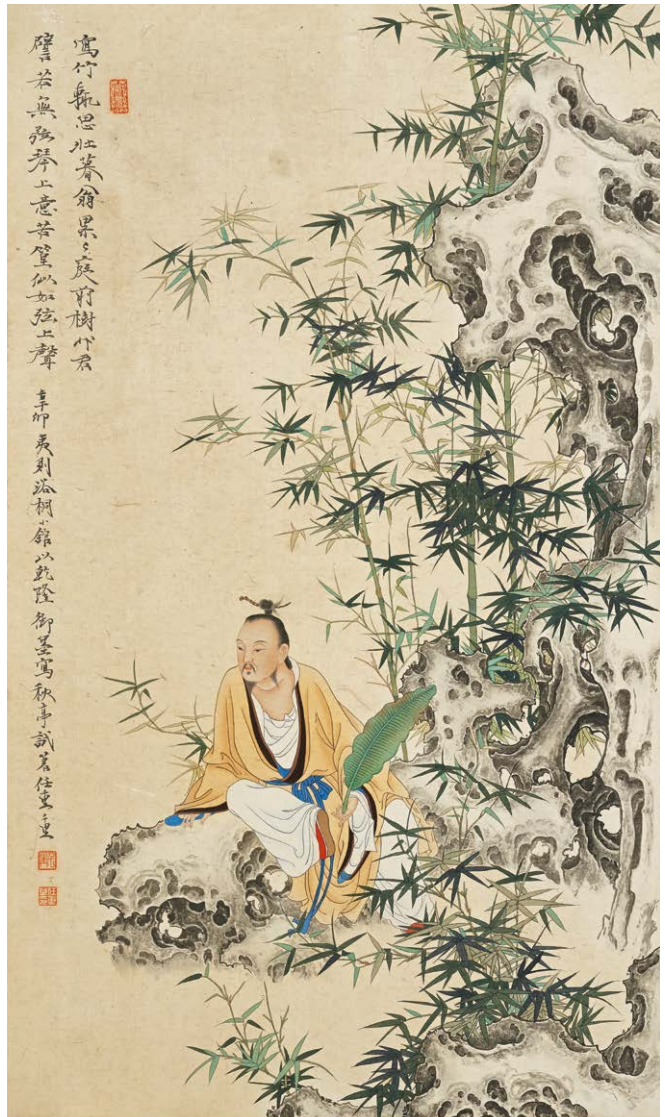 寫竹輒思壯暮翁果〻庭前樹代君
譬若無弦琴上意若篁似如弦上聲
辛卯夷則浴桐小館以乾隆御墨寫秋亭試茗任重